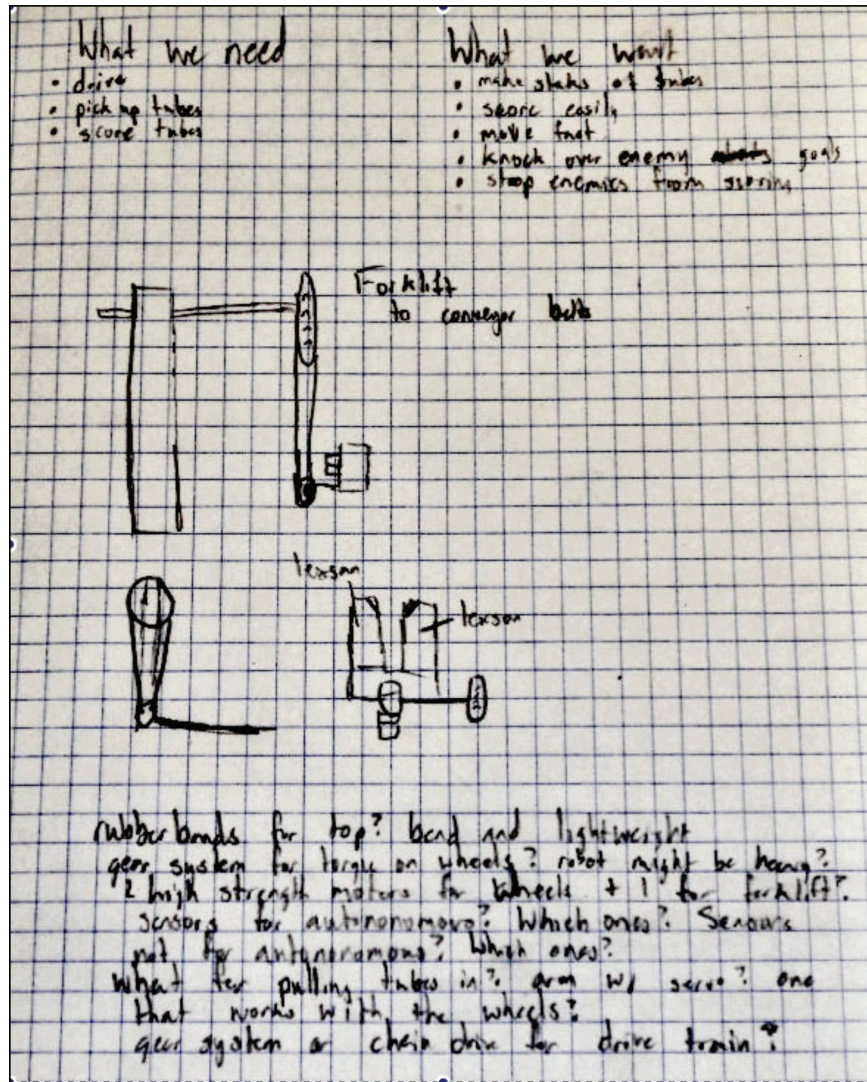 What we need
• drive
• pick up tubes
• score tubes
What we want
• make staks of tubes
• score easily
• move fast
• knock over enemy goals
• stop enemies from scoring
Forklift
to conveyor belts
lexsan
lexsan
rubber bands for top? bend and lightweight
gear system for torque on wheels? robot might be heavy?
2 high strength motors for wheels + 1 for forklift?
sensors for autinonomovo? Which ones? Sensors
not for antynoromous? Which ones?
what for pulling tubes in? arm w/ servo? one
that works with the wheels?
gear system or chain drive for drive train?